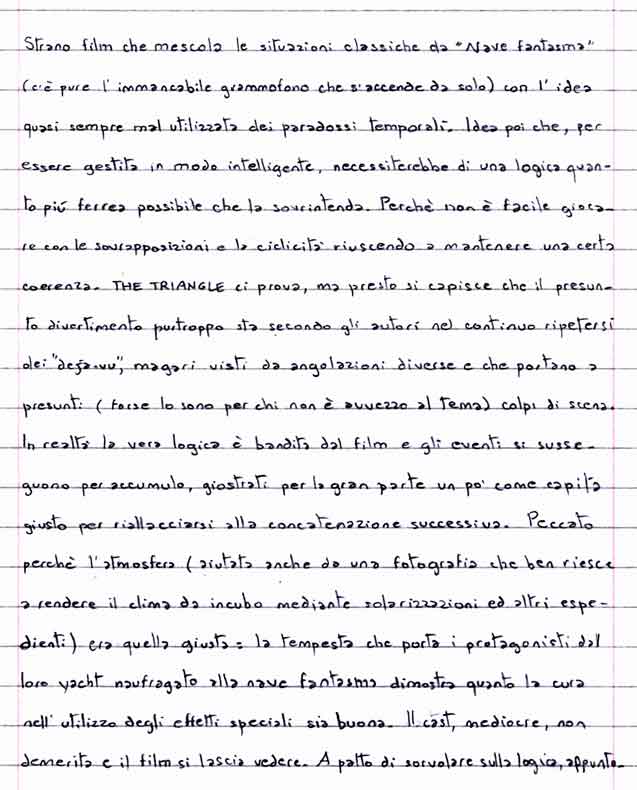 Strano film che mescola le situazioni classiche da "Nave fantasma"
(c'è pure l'immancabile grammofono che s'accende da solo) con l'idea
quasi sempre mal utilizzata dei paradossi temporali. Idea poi che, per
essere gestita in modo intelligente, necessiterebbe di una logica quan-
to più ferrea possibile che la sovrintenda. Perchè non è facile gioca-
re con le sovrapposizioni e la ciclicità riuscendo a mantenere una certa
coerenza. THE TRIANGLE ci prova, ma presto si capisce che il presun-
to divertimento purtroppo sta secondo gli autori nel continuo ripetersi
dei "deja-vu", magari visti da angolazioni diverse e che portano a
presunti (forse lo sono per chi non è avvezzo al tema) colpi di scena.
In realtà la vera logica è bandita dal film e gli eventi si susse-
guono per accumulo, giostrati per la gran parte un po' come capita
giusto per riallacciarsi alla concatenazione successiva. Peccato
perchè l'atmosfera (aiutata anche da una fotografia che ben riesce
a rendere il clima da incubo mediante solarizzazioni ed altri espe-
dienti) era quella giusta: la tempesta che porta i protagonisti dal
loro yacht naufragato alla nave fantasma dimostra quanto la cura
nell'utilizzo degli effetti speciali sia buona. Il cast, mediocre, non
demerita e il film si lascia vedere. A patto di sorvolare sulla logica, appunto.